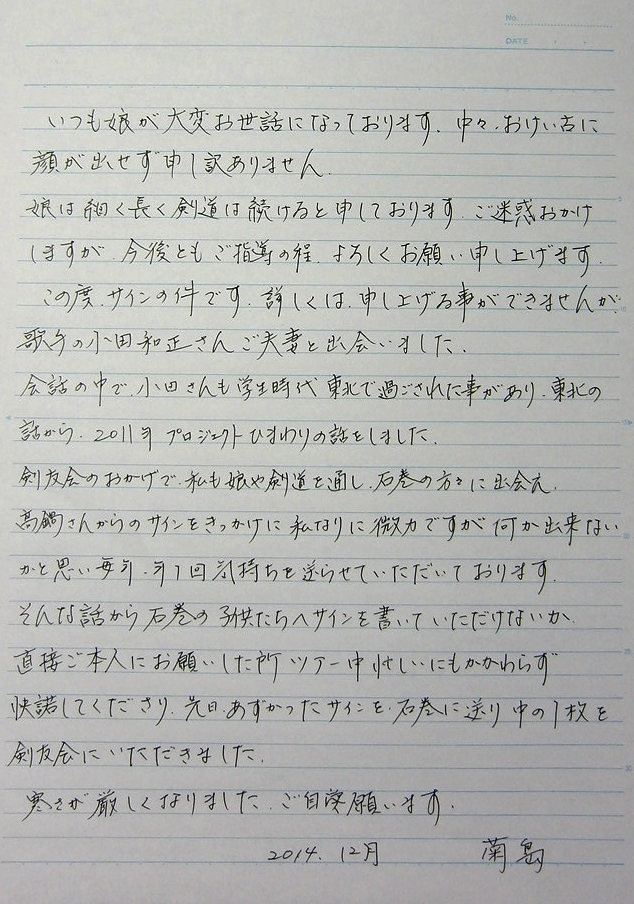 No.
DATE
いつも娘が大変お世話になっております。中々、おけい古に
顔が出せず申し訳ありません。
娘は細く長く剣道は続けると申しております。ご迷惑おかけ
しますが、今後ともご指導の程、よろしくお願い申し上げます。
この度、サインの件です。詳しくは、申し上げる事ができませんが、
歌手の小田和正さんご夫妻と出会いました。
会話の中で、小田さんも学生時代東北で過ごされた事があり、東北の
話から、2011年プロジェクトひまわりの話をしました。
剣友会のおかげで、私も娘や剣道を通し、石巻の方々に出会え、
高鍋さんからのサインをきっかけに私なりに微力ですが何か出来ない
かと思い毎年、年1回気持ちを送らせていただいております。
そんな話から石巻の子供たちへサインを書いていただけないか、
直接ご本人にお願いした所ツアー中忙しいにもかかわらず
快諾してくださり、先日、あずかったサインを、石巻に送り中の1枚を
剣友会にいただきました。
寒さが厳しくなりました。ご自愛願います。
2014. 12月 菊島